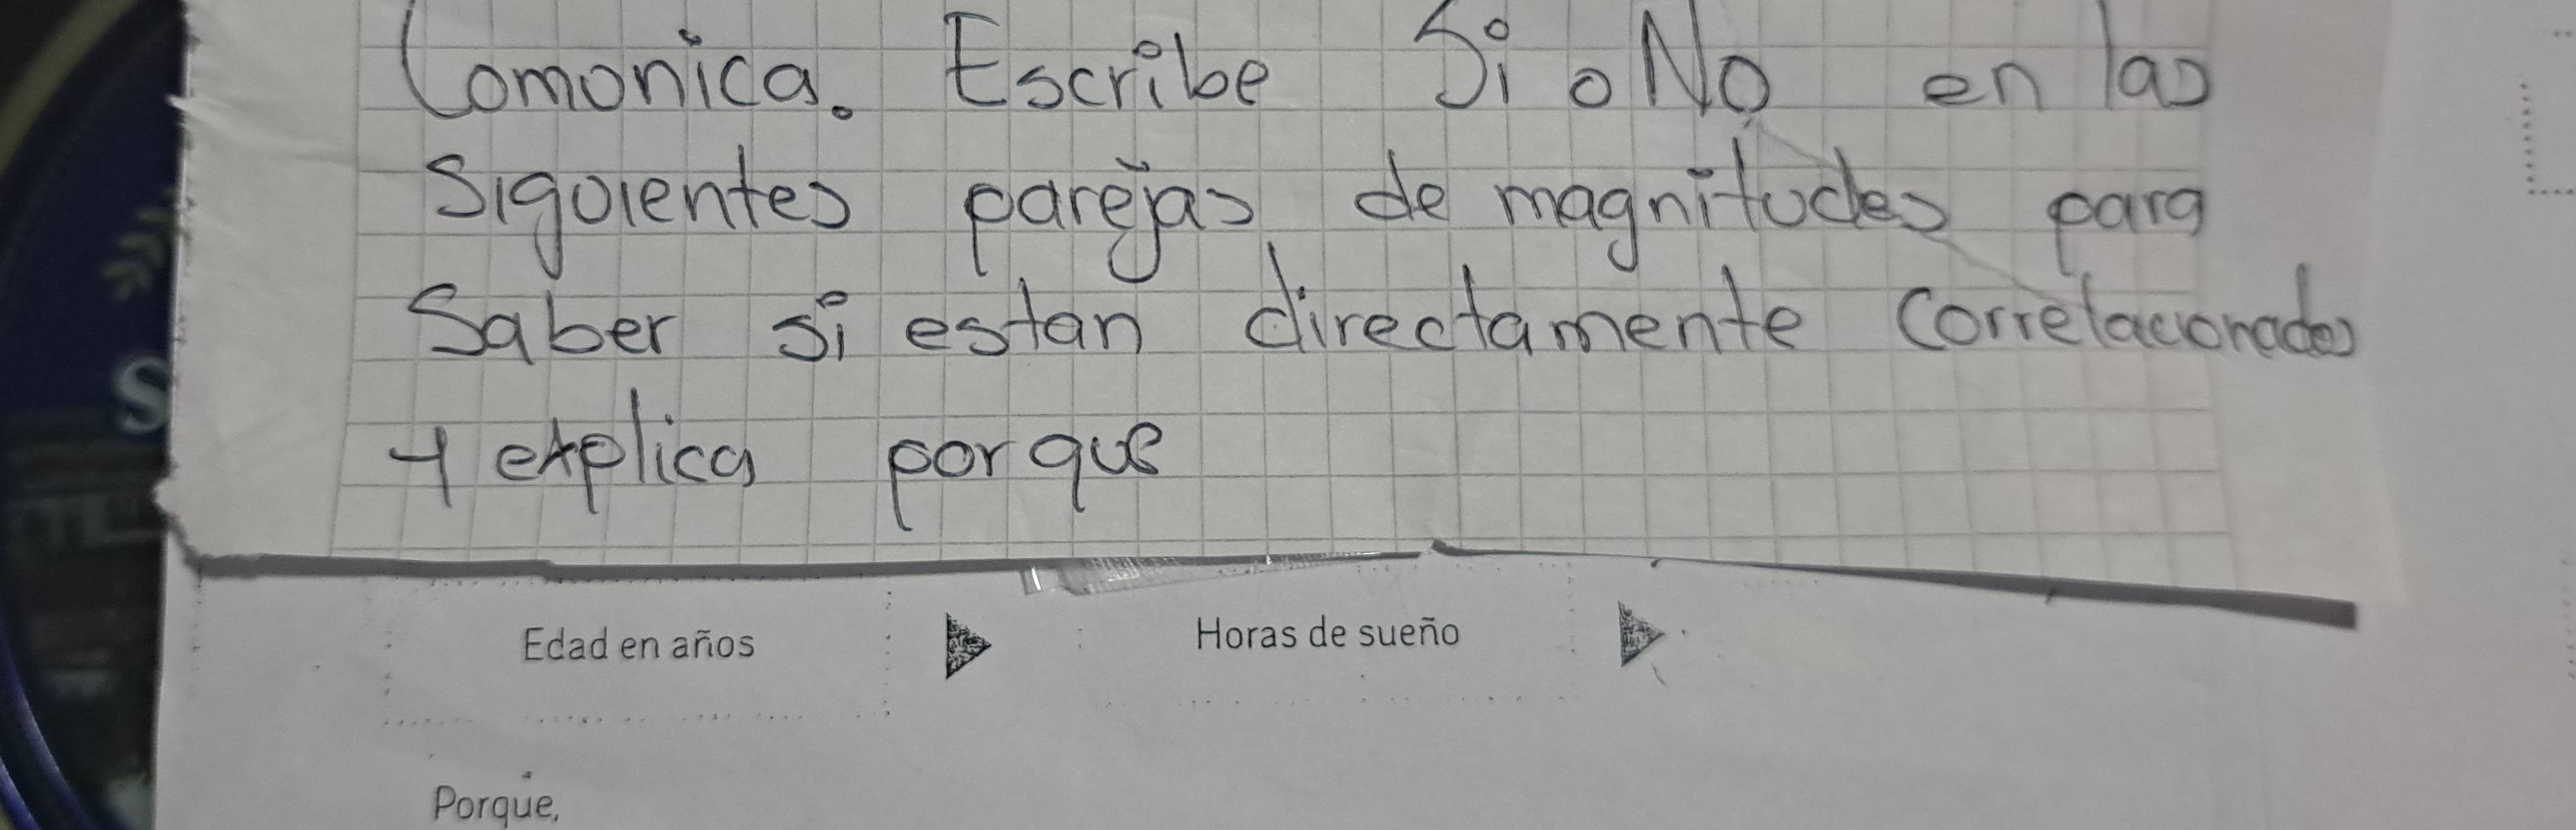 Comonica. Escribe Si o No en las
Sigoientes parejas de magnitodes para
Saber si estan directamente correlacionados
y explica por que
S
Edad en años
Horas de sueño
Porque,